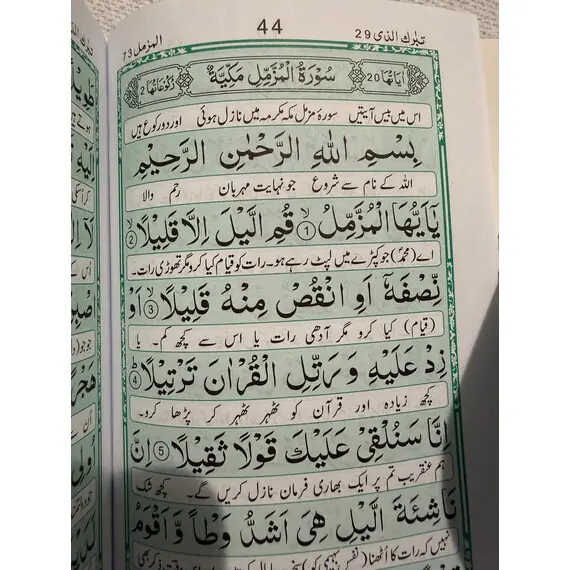 المزمل 73
44
تبٰرك الذى 29
اٰیاتها 20
سُوْرَةُ الْمُزَّمِّلِ مَكِّيَّةٌ
رکوعاتها 2
اس میں بیس آیتیں سورۂ مزمل مکہ مکرمہ میں نازل ہوئی اور دو رکوع ہیں
بِسْمِ اللّٰهِ الرَّحْمٰنِ الرَّحِيْمِ
اللہ کے نام سے شروع جو نہایت مہربان رحم والا
يٰۤاَيُّهَا الْمُزَّمِّلُ ۙ‏ 1 قُمِ الَّيْلَ اِلَّا قَلِيْلًا ۙ‏ 2
اے (محمدؐ) جو کپڑے میں لپٹ رہے ہو۔ رات کو قیام کیا کرو مگر تھوڑی رات۔
نِّصْفَهٗۤ اَوِ انْقُصْ مِنْهُ قَلِيْلًا ۙ‏ 3 اَوْ
(قیام) کیا کرو مگر آدھی رات یا اس سے کچھ کم۔ یا
زِدْ عَلَيْهِ وَ رَتِّلِ الْقُرْاٰنَ تَرْتِيْلًا ؕ‏ 4
کچھ زیادہ اور قرآن کو ٹھہر ٹھہر کر پڑھا کرو۔
اِنَّا سَنُلْقِىْ عَلَيْكَ قَوْلًا ثَقِيْلًا 5 اِنَّ
ہم عنقریب تم پر ایک بھاری فرمان نازل کریں گے۔ کچھ شک
نَاشِئَةَ الَّيْلِ هِىَ اَشَدُّ وَطْاً وَّ اَقْوَمُ
نہیں کہ رات کا اُٹھنا (نفس بہیمی کو)